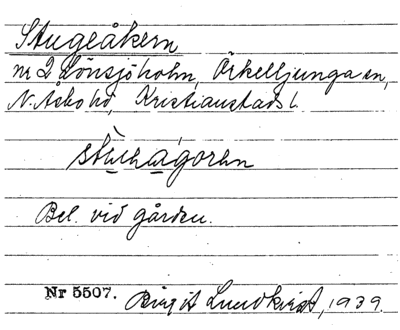 Stugeåkern
nr 2 Lönsjöholm, Örkelljunga sn,
N. Åsbo hd, Kristianstads l.
Bel. vid gården.
Nr 5507. Birgit Lundkvist, 1939.